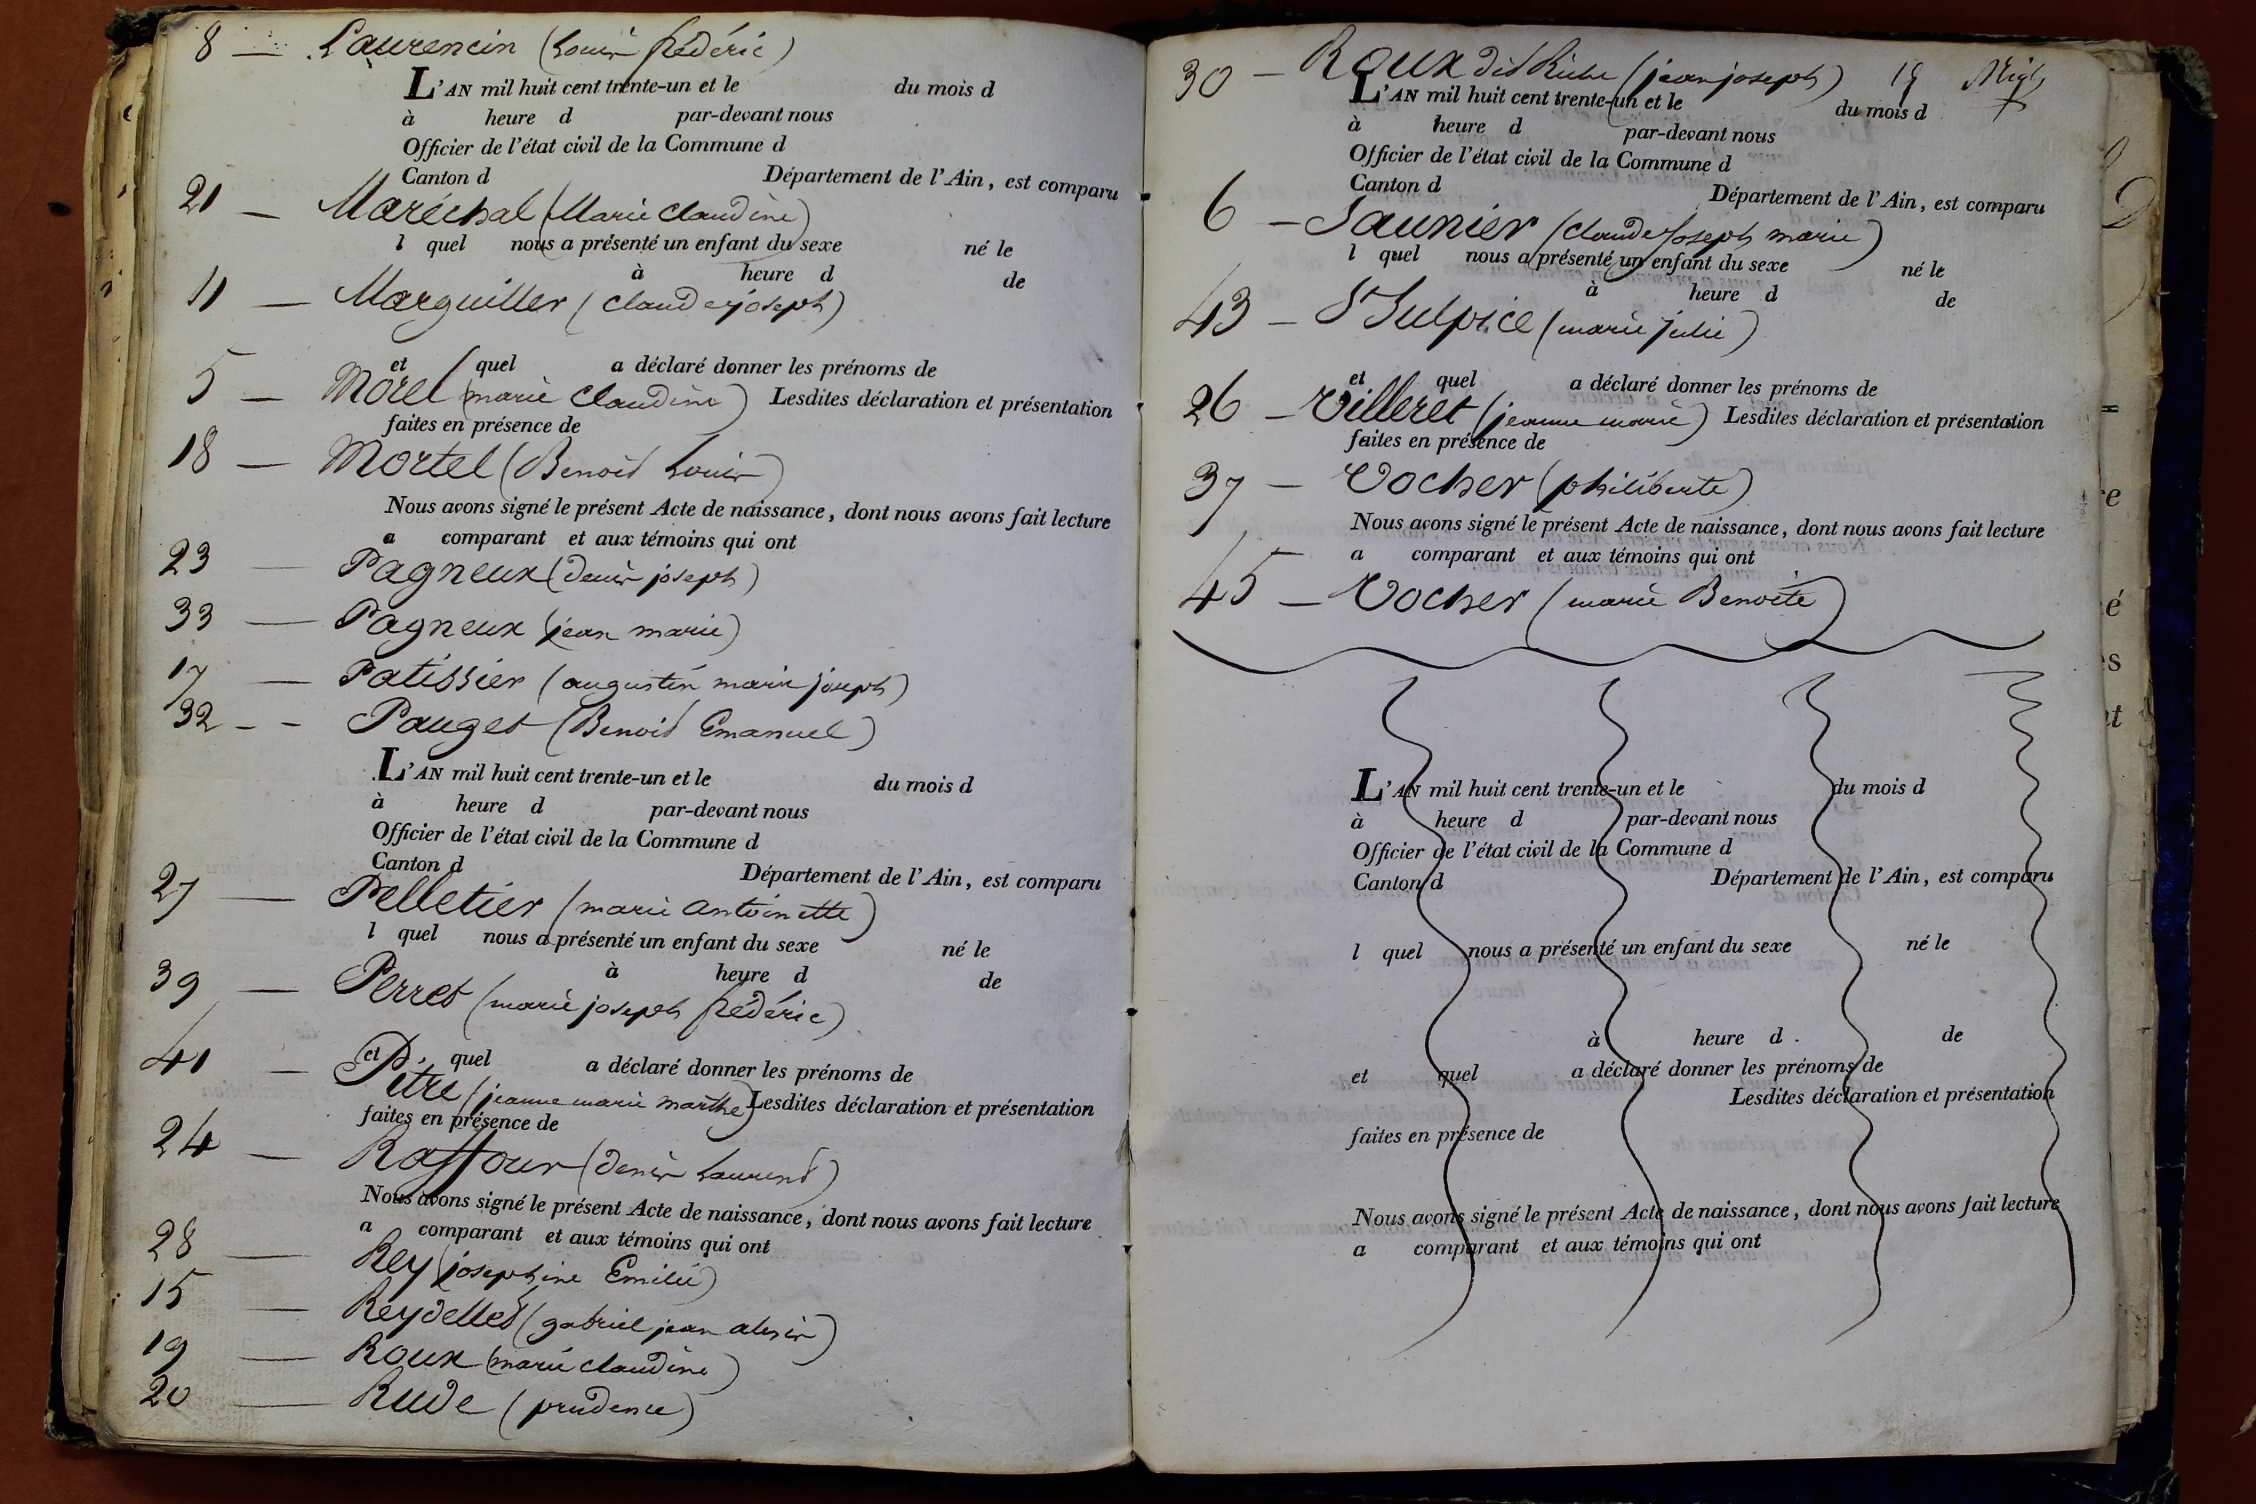 8 — Laurencin (Louis frédéric)
L'AN mil huit cent trente-un et le du mois d
à heure d par-devant nous
Officier de l'état civil de la Commune d
Canton d Département de l'Ain, est comparu
21 — Maréchal (Marie Claudine)
l quel nous a présenté un enfant du sexe né le
à heure d de
11 — Marguiller (claude joseph)
et quel a déclaré donner les prénoms de
5 — Morel (marie Claudine) Lesdites déclaration et présentation
faites en présence de
18 — Mortel (Benoit Louis)
Nous avons signé le présent Acte de naissance, dont nous avons fait lecture
a comparant et aux témoins qui ont
23 — Pagneux (denis joseph)
33 — Pagneux (jean marie)
17 — Patissier (augustin marie joseph)
32 - - Pauget (Benoit Emanuel)
L'AN mil huit cent trente-un et le du mois d
à heure d par-devant nous
Officier de l'état civil de la Commune d
Canton d Département de l'Ain, est comparu
27 — Pelletier (marie antoinette)
l quel nous a présenté un enfant du sexe né le
à heure d de
39 — Perret (marie joseph frédéric)
et quel a déclaré donner les prénoms de
41 — Pitre (jeanne marie marthe) Lesdites déclaration et présentation
faites en présence de
24 — Raffour (denis Laurent)
Nous avons signé le présent Acte de naissance, dont nous avons fait lecture
a comparant et aux témoins qui ont
28 — Rey (josephine Emilie)
15 — Reydellet (gabriel jean alexis)
19 — Roux (marie claudine)
20 — Rude (prudence)
30 — Roux dit (jean joseph) 19
L'AN mil huit cent trente-un et le du mois d
à heure d par-devant nous
Officier de l'état civil de la Commune d
Canton d Département de l'Ain, est comparu
6 — Saunier (claude Joseph marie)
l quel nous a présenté un enfant du sexe né le
à heure d de
43 — St Sulpice (marie julie)
et quel a déclaré donner les prénoms de
26 — Villeret (jeanne marie) Lesdites déclaration et présentation
faites en présence de
37 — Vocher (philiberte)
Nous avons signé le présent Acte de naissance, dont nous avons fait lecture
a comparant et aux témoins qui ont
45 — Vocher (marie Benoite)
L'AN mil huit cent trente-un et le du mois d
à heure d par-devant nous
Officier de l'état civil de la Commune d
Canton d Département de l'Ain, est comparu
l quel nous a présenté un enfant du sexe né le
à heure d de
et quel a déclaré donner les prénoms de
Lesdites déclaration et présentation
faites en présence de
Nous avons signé le présent Acte de naissance, dont nous avons fait lecture
a comparant et aux témoins qui ont